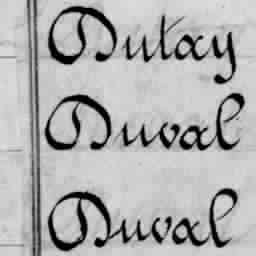 Dutay
Duval
Duval